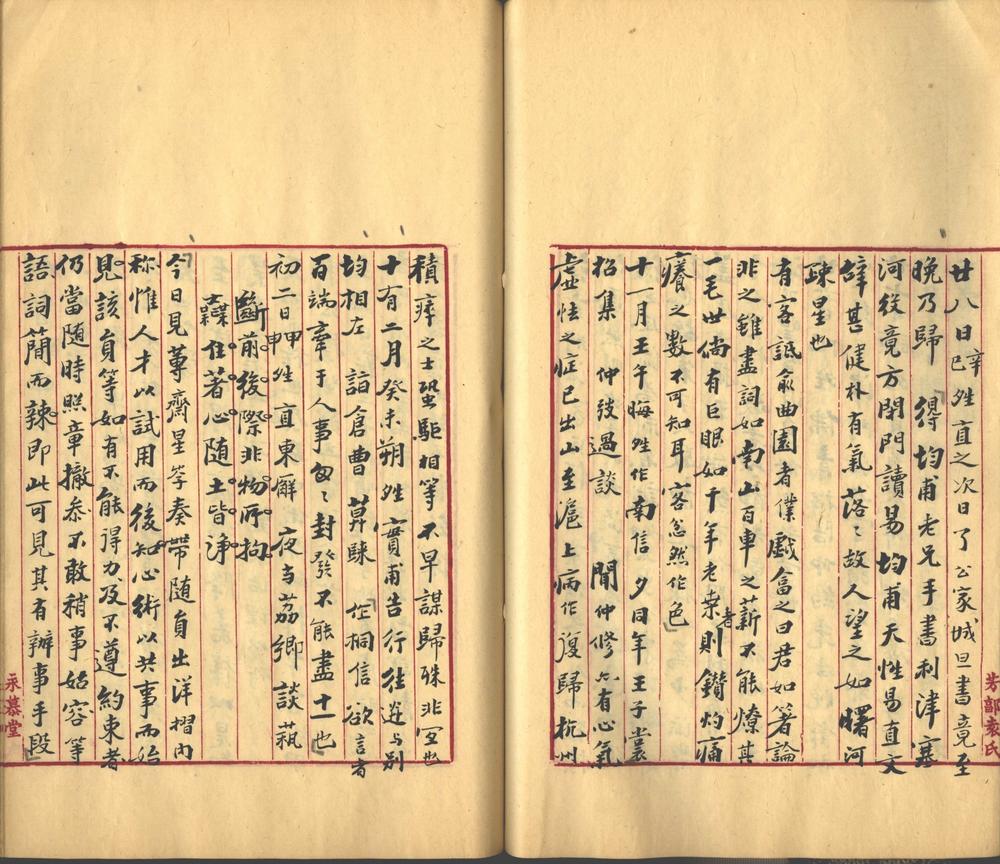 廿八日辛巳姓直之次日了公家城旦書竟至
晚乃歸 得均甫老兄手書利津塞
河役竟方閉門讀易均甫天性易直文
辭甚健朴有氣落〻故人望之如曙河
疎星也
有客詆俞曲園者僕戲㑹之曰君如箸論
非之雖盡詞如南山百車之薪不能燎其
一毛世倘有巨眼如千年老桒者則鑽灼痛
癢之數不可知耳客忽然作色
十一月壬午晦姓作南信夕同年王子裳
招集 仲弢過談 聞仲修亦有心氣
虛怯之症已出山至滬上病作復歸杭州
積瘁之士蛩駏相等不早謀歸殊非宜也
十有二月癸未朔姓實甫告行往送与別
均相左 詣倉曹 莫騋 作桐信欲言者
百端牽于人事匆〻封發不能盡十一也
初二日甲申姓 直東廨 夜与荔鄉談蓺
斷前後際非物所拘
藂住著心隨土皆淨
今日見蓴齋星笭奏帶随員出洋摺內
称惟人才以試用而後知心術以共事而始
見該員等如有不能得力及不遵約東者
仍當随時照章撤叅不敢稍事姑容等
語詞蕳而辣即此可見其有辦事手段
芳郭袁氏
永慕堂